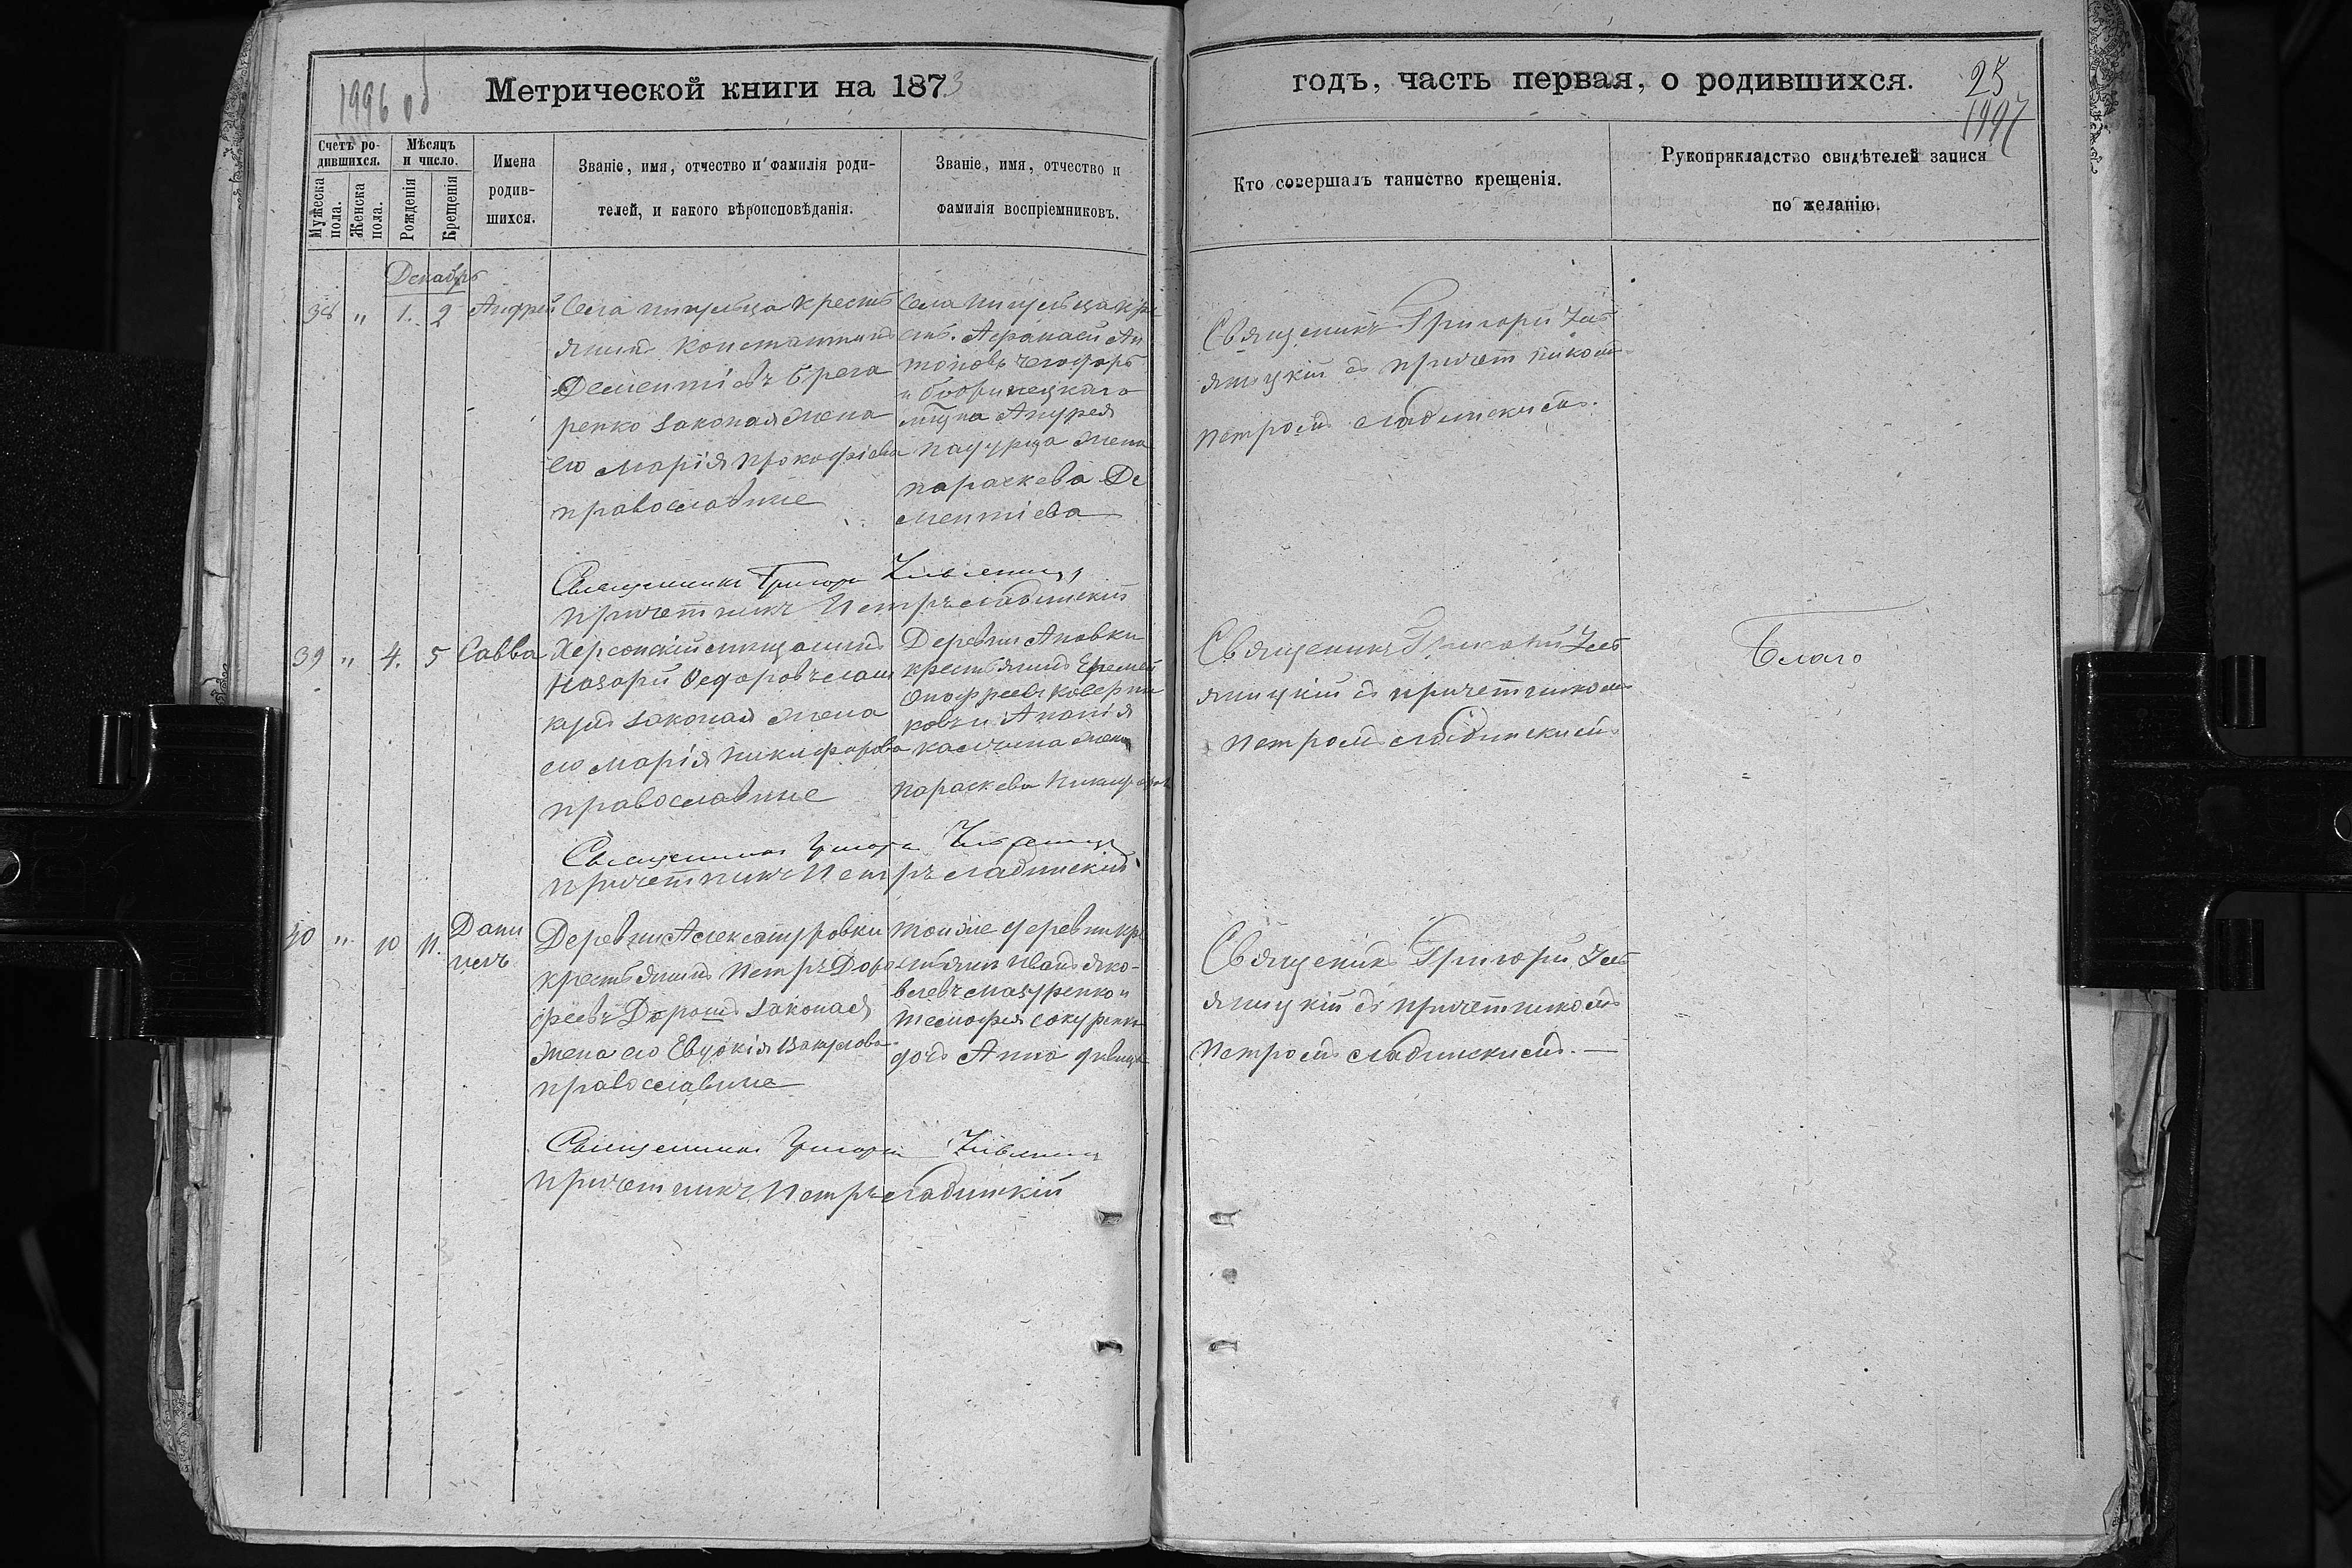 1996 об
Метрической книги на 1873
годъ, часть первая, о родившихся.
25
1997
Счетъ ро-
дившихся.
Мѣсяцъ
и число.
Мужеска
пола.
Женска
пола.
Рожденія
Крещенія
Имена
родив-
шихся.
Званіе, имя, отчество и фамилія роди-
телей, и какого вѣроисповѣданія.
Званіе, имя, отчество и
фамилія воспріемниковъ.
Кто совершалъ таинство крещенія.
Рукоприкладство свидѣтелей записи
по желанію.
Декабрь
38 " 1. 2 Андрей
Села кресть
янинъ Константинъ
Дементіевъ
ренко законая жена
его Марія Прокофіева
православные
Села
Афанасій Ан
тоновъ
и Бобринецкаго
Андрея
жена
Параскева Де
ментіева
Священикъ Григорій
съ причетником
Петромъ Слабинскимъ.
Священникъ Григорій
Причетникъ Петръ Слабинскій
39 " 4. 5 Савва
Херсонскій мещанинъ
Назарій Федоровъ
законая жена
его Марія Никифорова
православные
Деревни Ановки
крестьянинъ Еремей
Онофреевъ
и Ананія
жена
Параскева
Священикъ Григорій
съ причетникомъ
Петромъ Слабинскимъ.
Благо
Священникъ Григорій
Причетникъ Петръ Слабинскій
40 " 10 11. Дани
илъ
Деревни Александровки
крестьянинъ Петръ Доро
феевъ Дорошъ законая
жена его Евдокія Вакулова
православные
Тойже деревни кре
стьянин Иванъ Яко-
влевъ Мазуренко и
Тимофея
дочь Анна девица
Священикъ Григорій
съ причетникомъ
Петромъ Слабинскимъ. —
Священникъ Григорій
Причетникъ Петръ Слабинскій